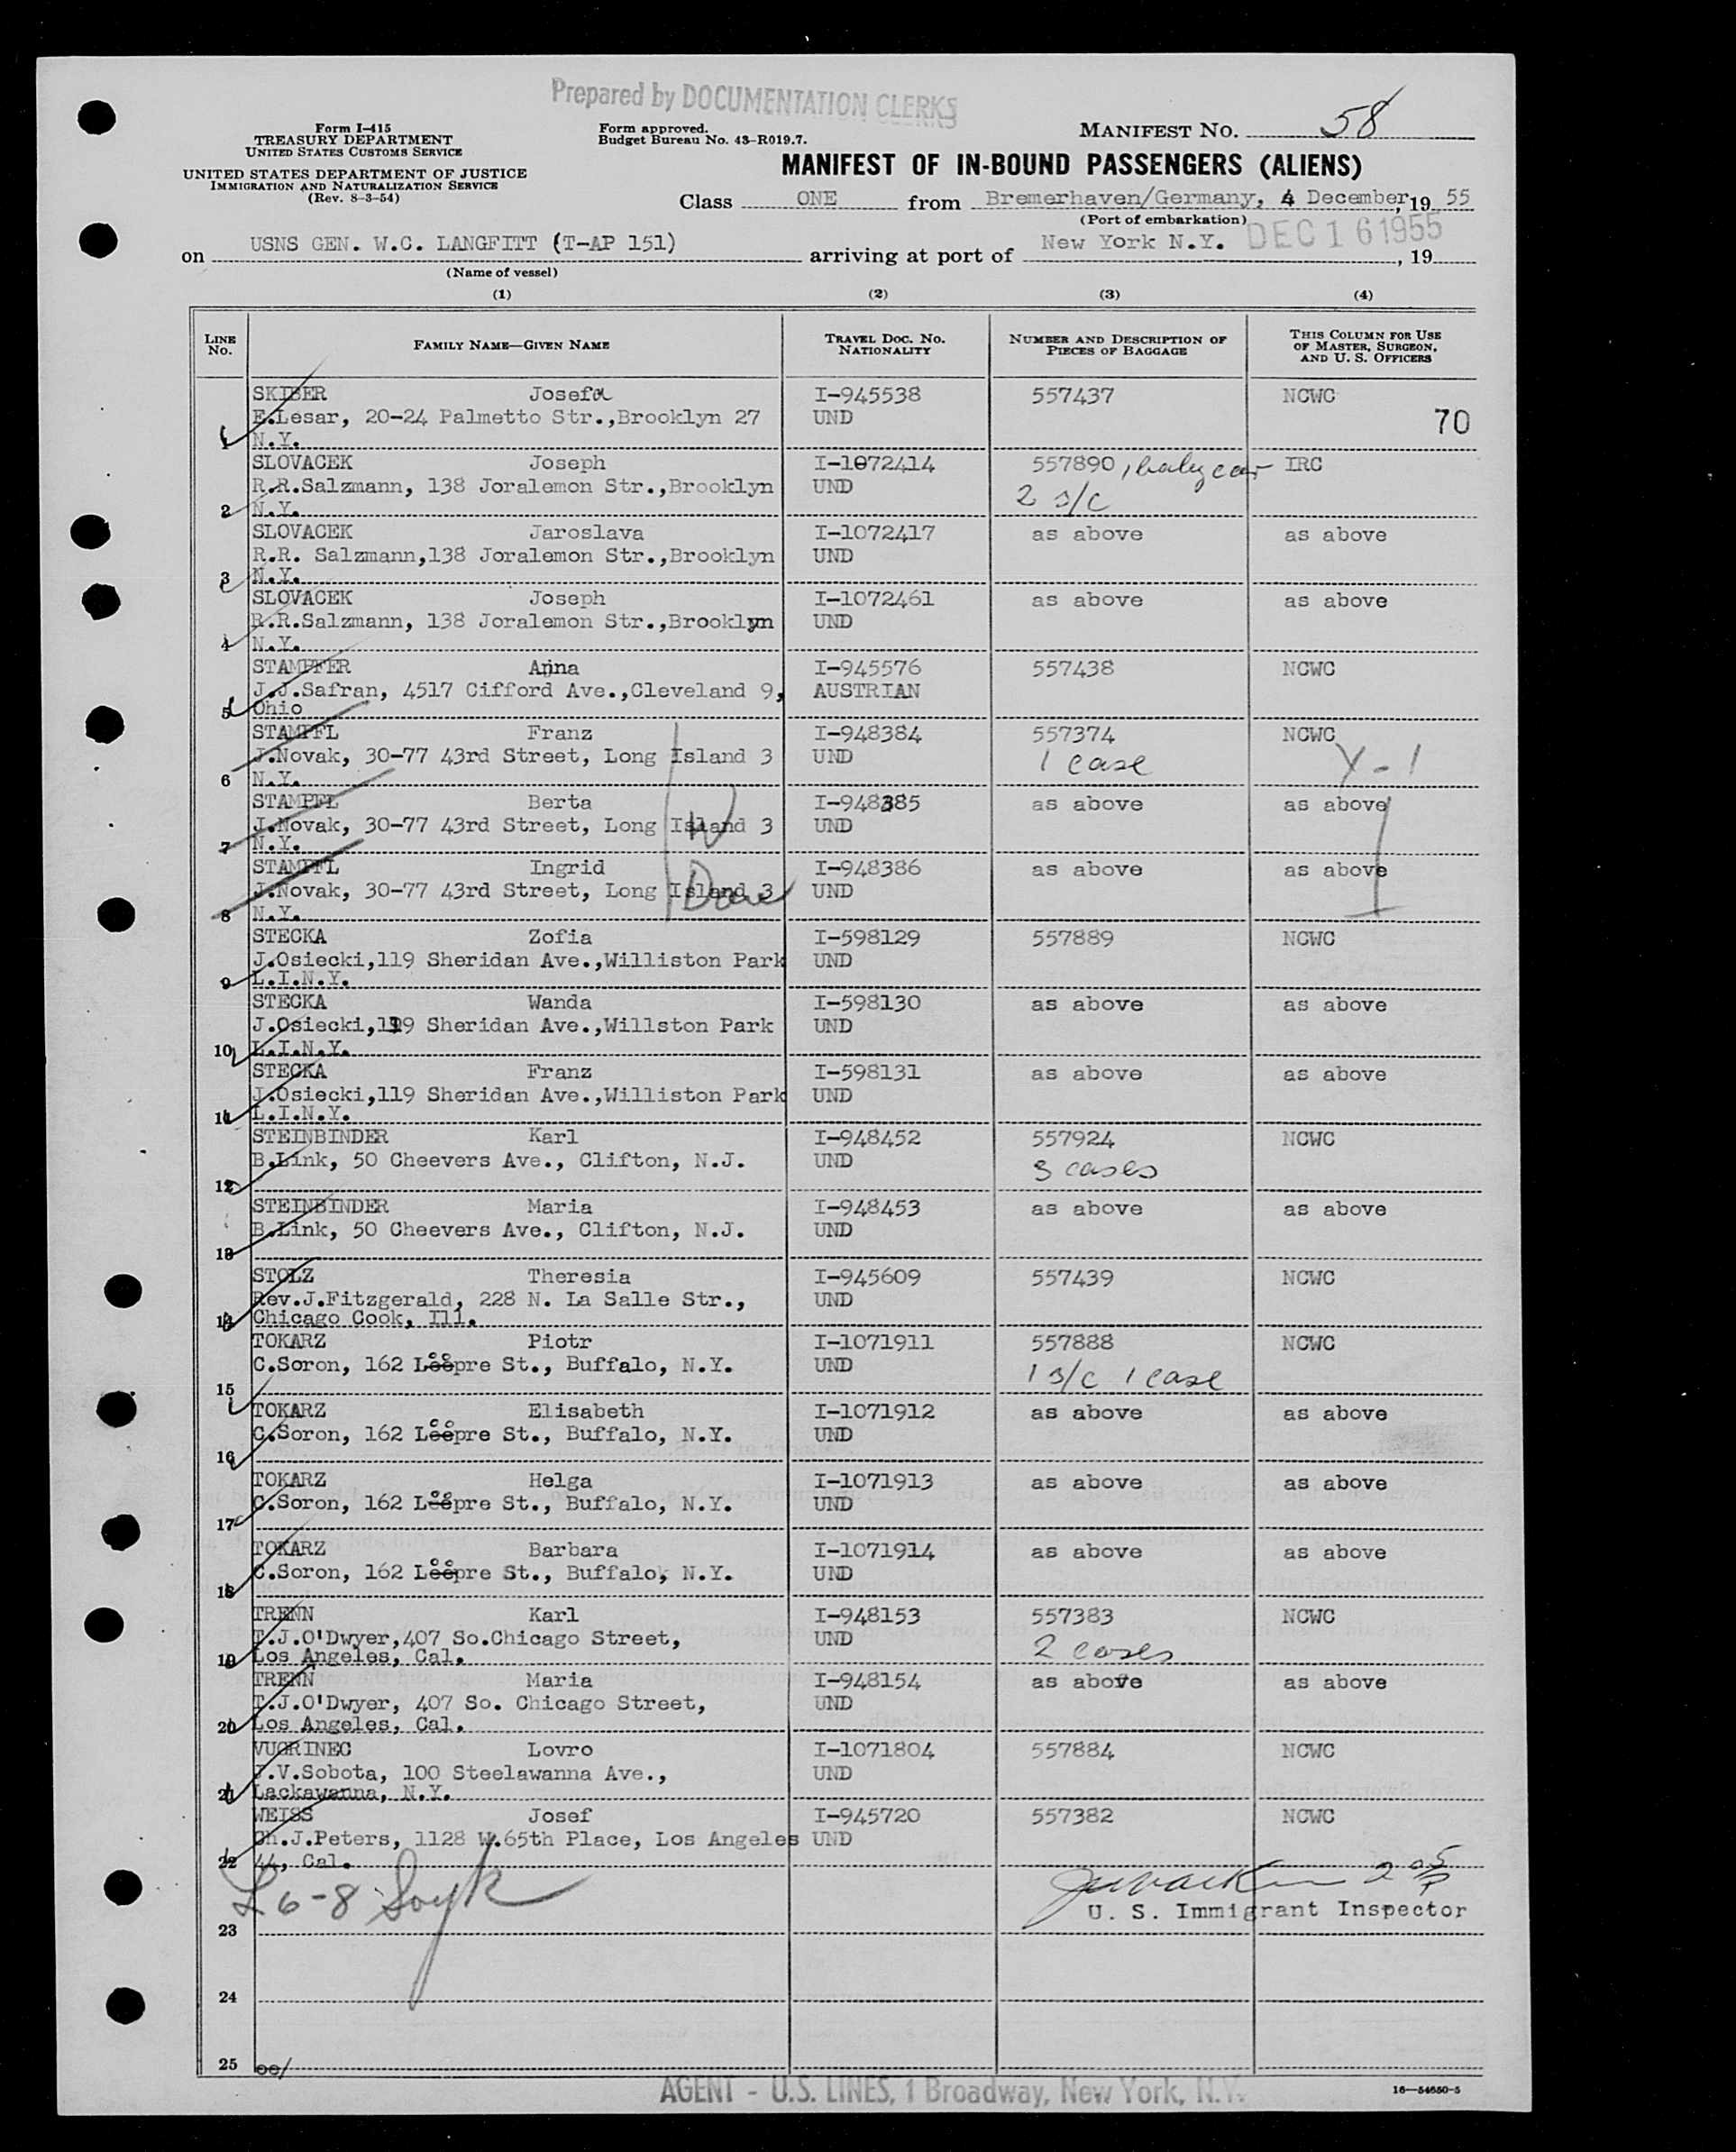 Prepared by DOCUMENTATION CLERKS
Form I-415
TREASURY DEPARTMENT
UNITED STATES CUSTOMS SERVICE
UNITED STATES DEPARTMENT OF JUSTICE
IMMIGRATION AND NATURALIZATION SERVICE
(Rev. 8-3-54)
Form approved.
Budget Bureau No. 43-R019.7.
MANIFEST NO. 58
MANIFEST OF IN-BOUND PASSENGERS (ALIENS)
Class ONE from Bremerhaven/Germany, 4 December, 19 55
(Port of embarkation)
on USNS GEN. W.C. LANGFITT (T-AP 151) arriving at port of New York N.Y. DEC 16 1955, 19
(Name of vessel)
(1) (2) (3) (4)
LINE NO. FAMILY NAME—GIVEN NAME TRAVEL DOC. NO. NATIONALITY NUMBER AND DESCRIPTION OF PIECES OF BAGGAGE THIS COLUMN FOR USE OF MASTER, SURGEON, AND U. S. OFFICERS
SKIBER Josefa I-945538 557437 NCWC
E.Lesar, 20-24 Palmetto Str.,Brooklyn 27 UND 70
1 N.Y.
SLOVACEK Joseph I-1072414 557890, baby car IRC
R.R.Salzmann, 138 Joralemon Str.,Brooklyn UND 2 s/c
2 N.Y.
SLOVACEK Jaroslava I-1072417 as above as above
R.R. Salzmann,138 Joralemon Str.,Brooklyn UND
3 N.Y.
SLOVACEK Joseph I-1072461 as above as above
R.R.Salzmann, 138 Joralemon Str.,Brooklyn UND
4 N.Y.
STAMPFER Anna I-945576 557438 NCWC
J.J.Safran, 4517 Cifford Ave.,Cleveland 9, AUSTRIAN
5 Ohio
STAMPFL Franz I-948384 557374 NCWC
J.Novak, 30-77 43rd Street, Long Island 3 UND 1 case Y-1
6 N.Y.
STAMPFL Berta I-948385 as above as above
J.Novak, 30-77 43rd Street, Long Island 3 UND
7 N.Y.
STAMPFL Ingrid I-948386 as above as above
J.Novak, 30-77 43rd Street, Long Island 3 UND
8 N.Y.
STECKA Zofia I-598129 557889 NCWC
J.Osiecki,119 Sheridan Ave.,Williston Park UND
9 L.I.N.Y.
STECKA Wanda I-598130 as above as above
J.Osiecki,119 Sheridan Ave.,Willston Park UND
10 L.I.N.Y.
STECKA Franz I-598131 as above as above
J.Osiecki,119 Sheridan Ave.,Williston Park UND
11 L.I.N.Y.
STEINBINDER Karl I-948452 557924 NCWC
B.Link, 50 Cheevers Ave., Clifton, N.J. UND 3 cases
12
STEINBINDER Maria I-948453 as above as above
B.Link, 50 Cheevers Ave., Clifton, N.J. UND
13
STOLZ Theresia I-945609 557439 NCWC
Rev.J.Fitzgerald, 228 N. La Salle Str., UND
14 Chicago Cook, Ill.
TOKARZ Piotr I-1071911 557888 NCWC
C.Soron, 162 Loepre St., Buffalo, N.Y. UND 1 s/c 1 case
15
TOKARZ Elisabeth I-1071912 as above as above
C.Soron, 162 Loepre St., Buffalo, N.Y. UND
16
TOKARZ Helga I-1071913 as above as above
C.Soron, 162 Loepre St., Buffalo, N.Y. UND
17
TOKARZ Barbara I-1071914 as above as above
C.Soron, 162 Loepre St., Buffalo, N.Y. UND
18
TRENN Karl I-948153 557383 NCWC
T.J.O'Dwyer,407 So.Chicago Street, UND 2 cases
19 Los Angeles, Cal.
TRENN Maria I-948154 as above as above
T.J.O'Dwyer, 407 So. Chicago Street, UND
20 Los Angeles, Cal.
VUORINEC Lovro I-1071804 557884 NCWC
J.V.Sobota, 100 Steelawanna Ave., UND
21 Lackawanna, N.Y.
WEISS Josef I-945720 557382 NCWC
Ch.J.Peters, 1128 W.65th Place, Los Angeles UND
22 44, Cal.
L 6-8
U. S. Immigrant Inspector
23
24
25
AGENT - U.S. LINES, 1 Broadway, New York, N.Y.
16—54650-5